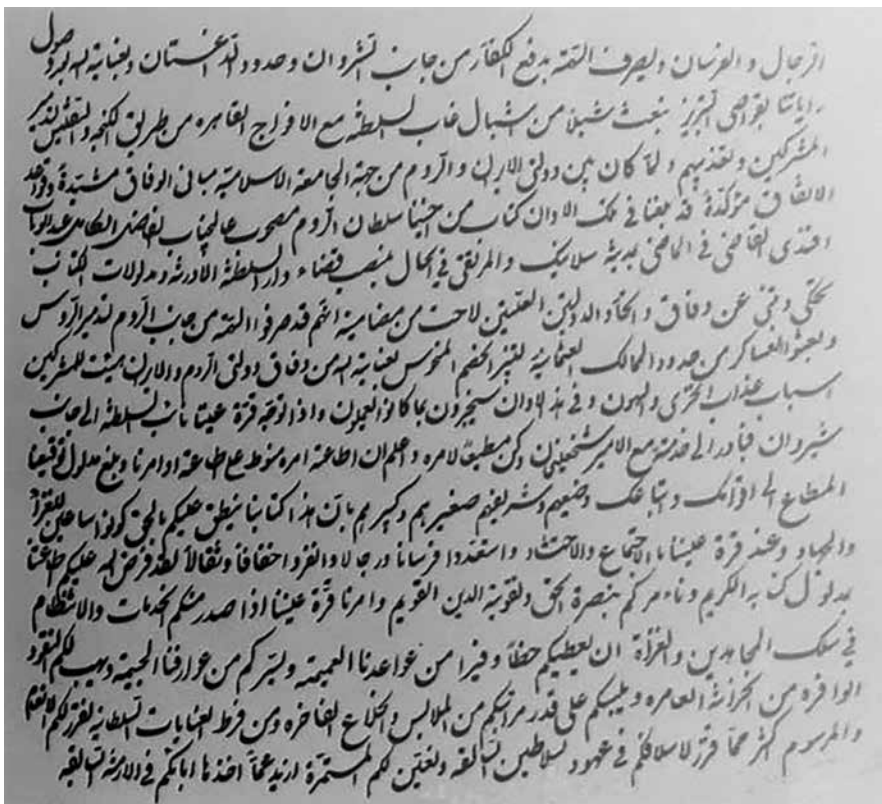 الرجال و الفرسان وليصرف الهمّة بدفع الكفار من جانب الشروان وحدود الداغستان وبعناية الله بعد وصول
راياتنا بنواحى التبريز نبعث شبلاً من اشبال غاب السلطنة مع الافواج القاهره من طريق الكنجه والتفليس لتدمير
المشركين وتعذيبهم ولمّا كان بين دولتى الايران والرّوم من جهة الجامعة الاسلاميّة مبانى الوفاق مشيّدةً وقواعد
الاتفاق مؤكّدةً قد بلغنا فى تلك الاوان كتاب من اخينا سلطان الرّوم مصحوب عاليجناب القاضى الكامل عبد الوهاب
افندى القاضى فى الماضى بمدينة سلانيك والمرتقى فى الحال بمنصب قضاء دار السلطنة الادرنه ومدلولات الكتاب
تحكى وتنبئ عن وفاق و اتحاد الدولتين العليّتين لاحت من مضامينه انهم قد صرفوا الهمّة من جانب الرّوم لتدمير الرّوس
وبعثوا العساكر من حدود الممالك العثمانيّة لقهر الخصم المنحوس بعناية الله من وفاق دولتى الرّوم والايران هيئت للمشركين
اسباب عذاب الخزى والهون و فى هذه الاوان سيجزون بما كانوا يعملون و اذا توجّه قرّة عيننا نائب السلطنة الى جانب
شيروان فبادر الى خدمته مع الامير شيخعليخان وكن مطيعًا لامره واعلم ان اطاعة امره منوط على اطاعة اوامرنا وبلغ مدلول توقيعنا
المطاع الى اقرانك واتباعك وضيعهم وشريفهم صغيرهم وكبيرهم بانّ هذا كتابنا ينطق عليكم بالحق كونوا ساعين للغزا
والجهاد وعند قرة عيننا بالاجتماع والاحتشاد واستعدوا فرسانا ورجالا وانفروا خفافاً وثقالاً لقد فرض الله عليكم طاعتنا
بمدلول كتابه الكريم ونامركم بنصرة الحق وتقوية الدين القويم وامرنا قرّة عيننا اذا صدر منكم الخدمات والانتظام
فى سلك المجاهدين والغزاة ان يعطيكم حظاً وفيرا من عوائدنا العميمة ويسرّكم من عوارفنا الجسيمة ويهب لكم النقود
الوافره من الخزانة العامره ويلبسكم على قدر مراتبكم من الملابس والخلاع الفاخره ومن فرط العنايات السلطانية نقرّر لكم الانعام
والمرسوم اكثر ممّا قرّر لاسلافكم فى عهود السلاطين السّالفه ونعيّن لكم المستمرّة ازيد عمّا اخذ آبائكم فى الازمنة السّالفه